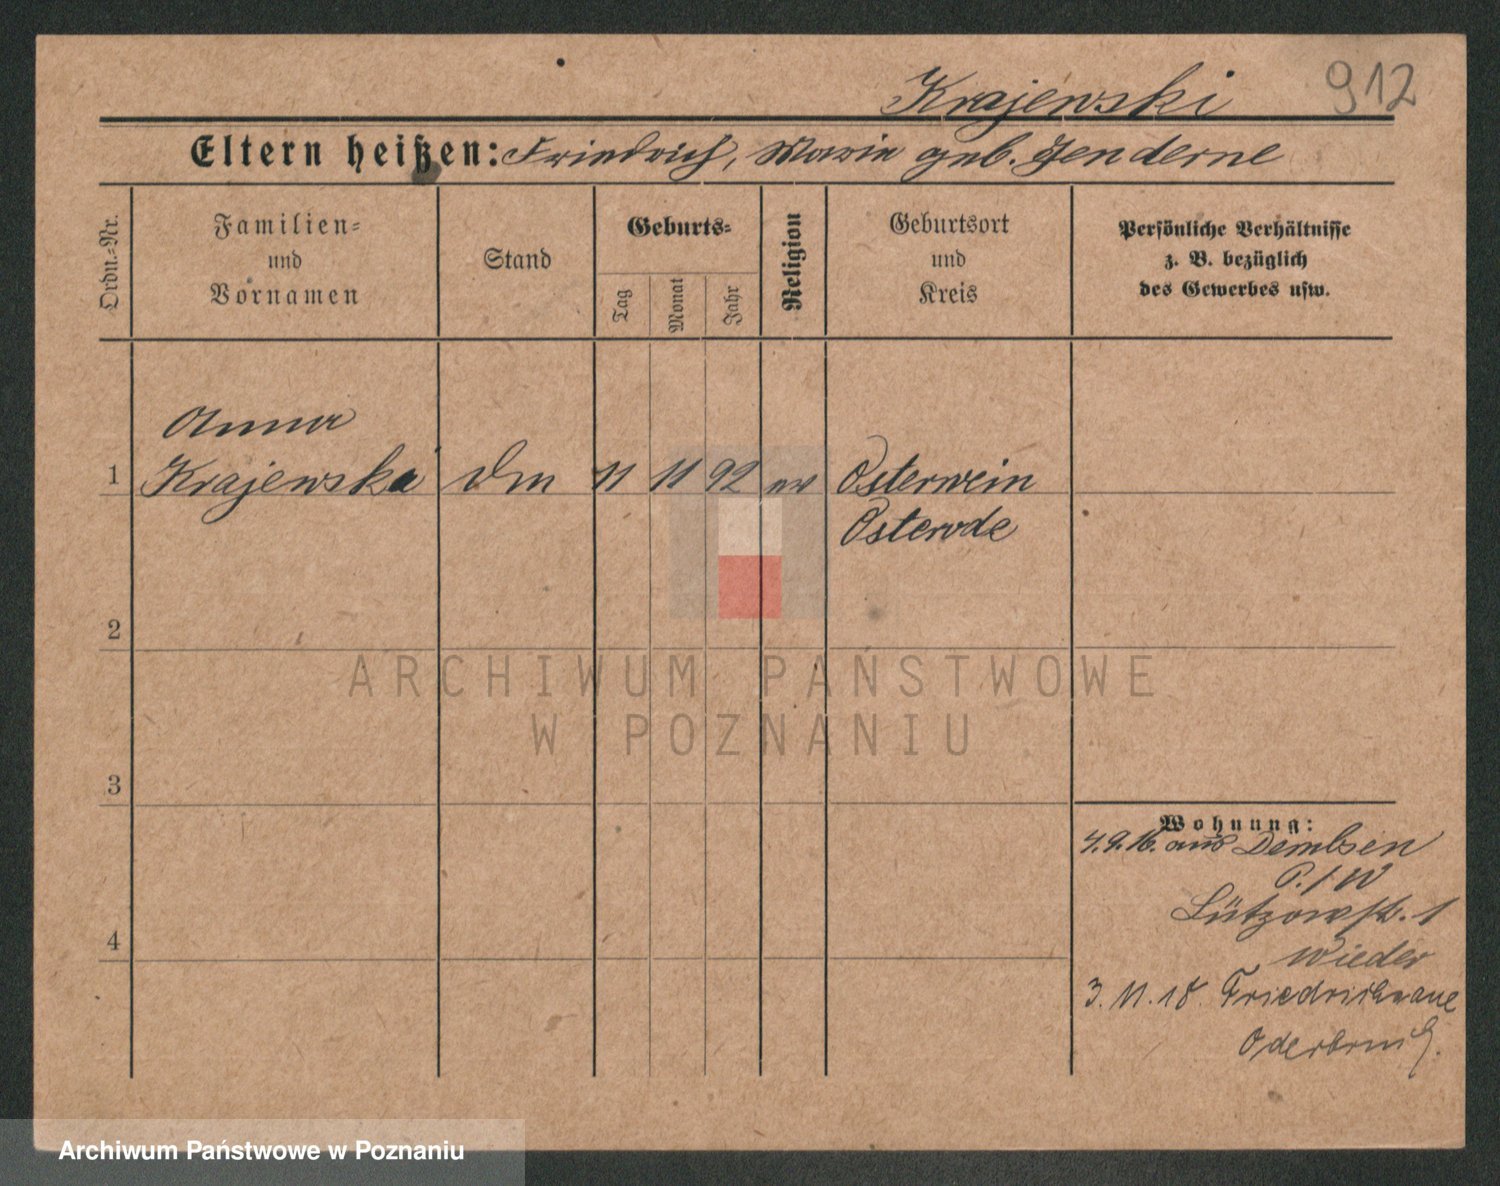 Krajewski 912
Eltern heißen: Friedrich, Marie geb. Jenderne
Ordn.-Nr.
Familien-
und
Vornamen
Stand
Geburts-
Tag
Monat
Jahr
Religion
Geburtsort
und
Kreis
Persönliche Verhältnisse
z. B. bezüglich
des Gewerbes usw.
Anna
1 Krajewska 11 11 92 ev Osterwein
Osterode
2
ARCHIWUM PAŃSTWOWE
W POZNANIU
3
Wohnung:
4.9.16. aus Dembsen
P. / W
Lützowstr. 1
4
wieder
3. 11. 18.
Oderbruch.
Archiwum Państwowe w Poznaniu